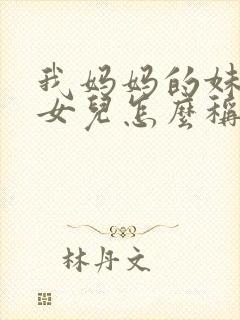 我妈妈的妹
女兒怎麼稱
林丹文